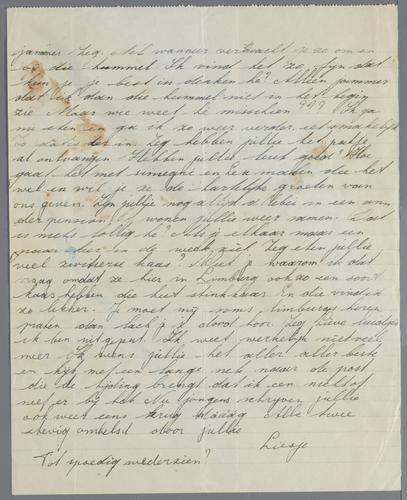 jammer zeg. Met wanneer verwacht je zo om en
bij die hummel. Ik vind het zo fijn dat
kun je je best in denken hè? Alleen jammer
dat ik dan die hummel niet in het begin
zie. Maar wie weet he misschien??? Ik ga
nu eten en ga ik zo weer verder. eet smakelijk
zeg hebben jullie het pakje
al ontvangen. Hebben jullie
gaat het met en maken die het
wel en wil je ze de hartelijke groeten van
ons geven. Zijn jullie nog altijd allebei in een an
der pension, of wonen jullie weer samen. Dat
is niets lollig he? Als je elkaar maar een
paar in de week ziet. Zeg eten jullie
veel zwitserse kaas? Weet je waarom ik dat
vraag omdat ze hier in Limburg ook zo een soort
kaas hebben die heet stinkkaas. En die vind ik
zo lekker. Je moest mij soms limburgs horen
praten dan lach je je dood hoor. Zeg lieve
ik ben uitgeput. Ik weet werkelijk niet veel
meer. Ik wens jullie het aller aller beste
en kijk met een lange nek naar de post
die de tijding brengt dat ik een nicht of
neef er bij heb. Nu jongens schrijven jullie
ook weer eens terug. Alle twee
stevig omhelsd door jullie
Liesje
Tot spoedig wederzien?